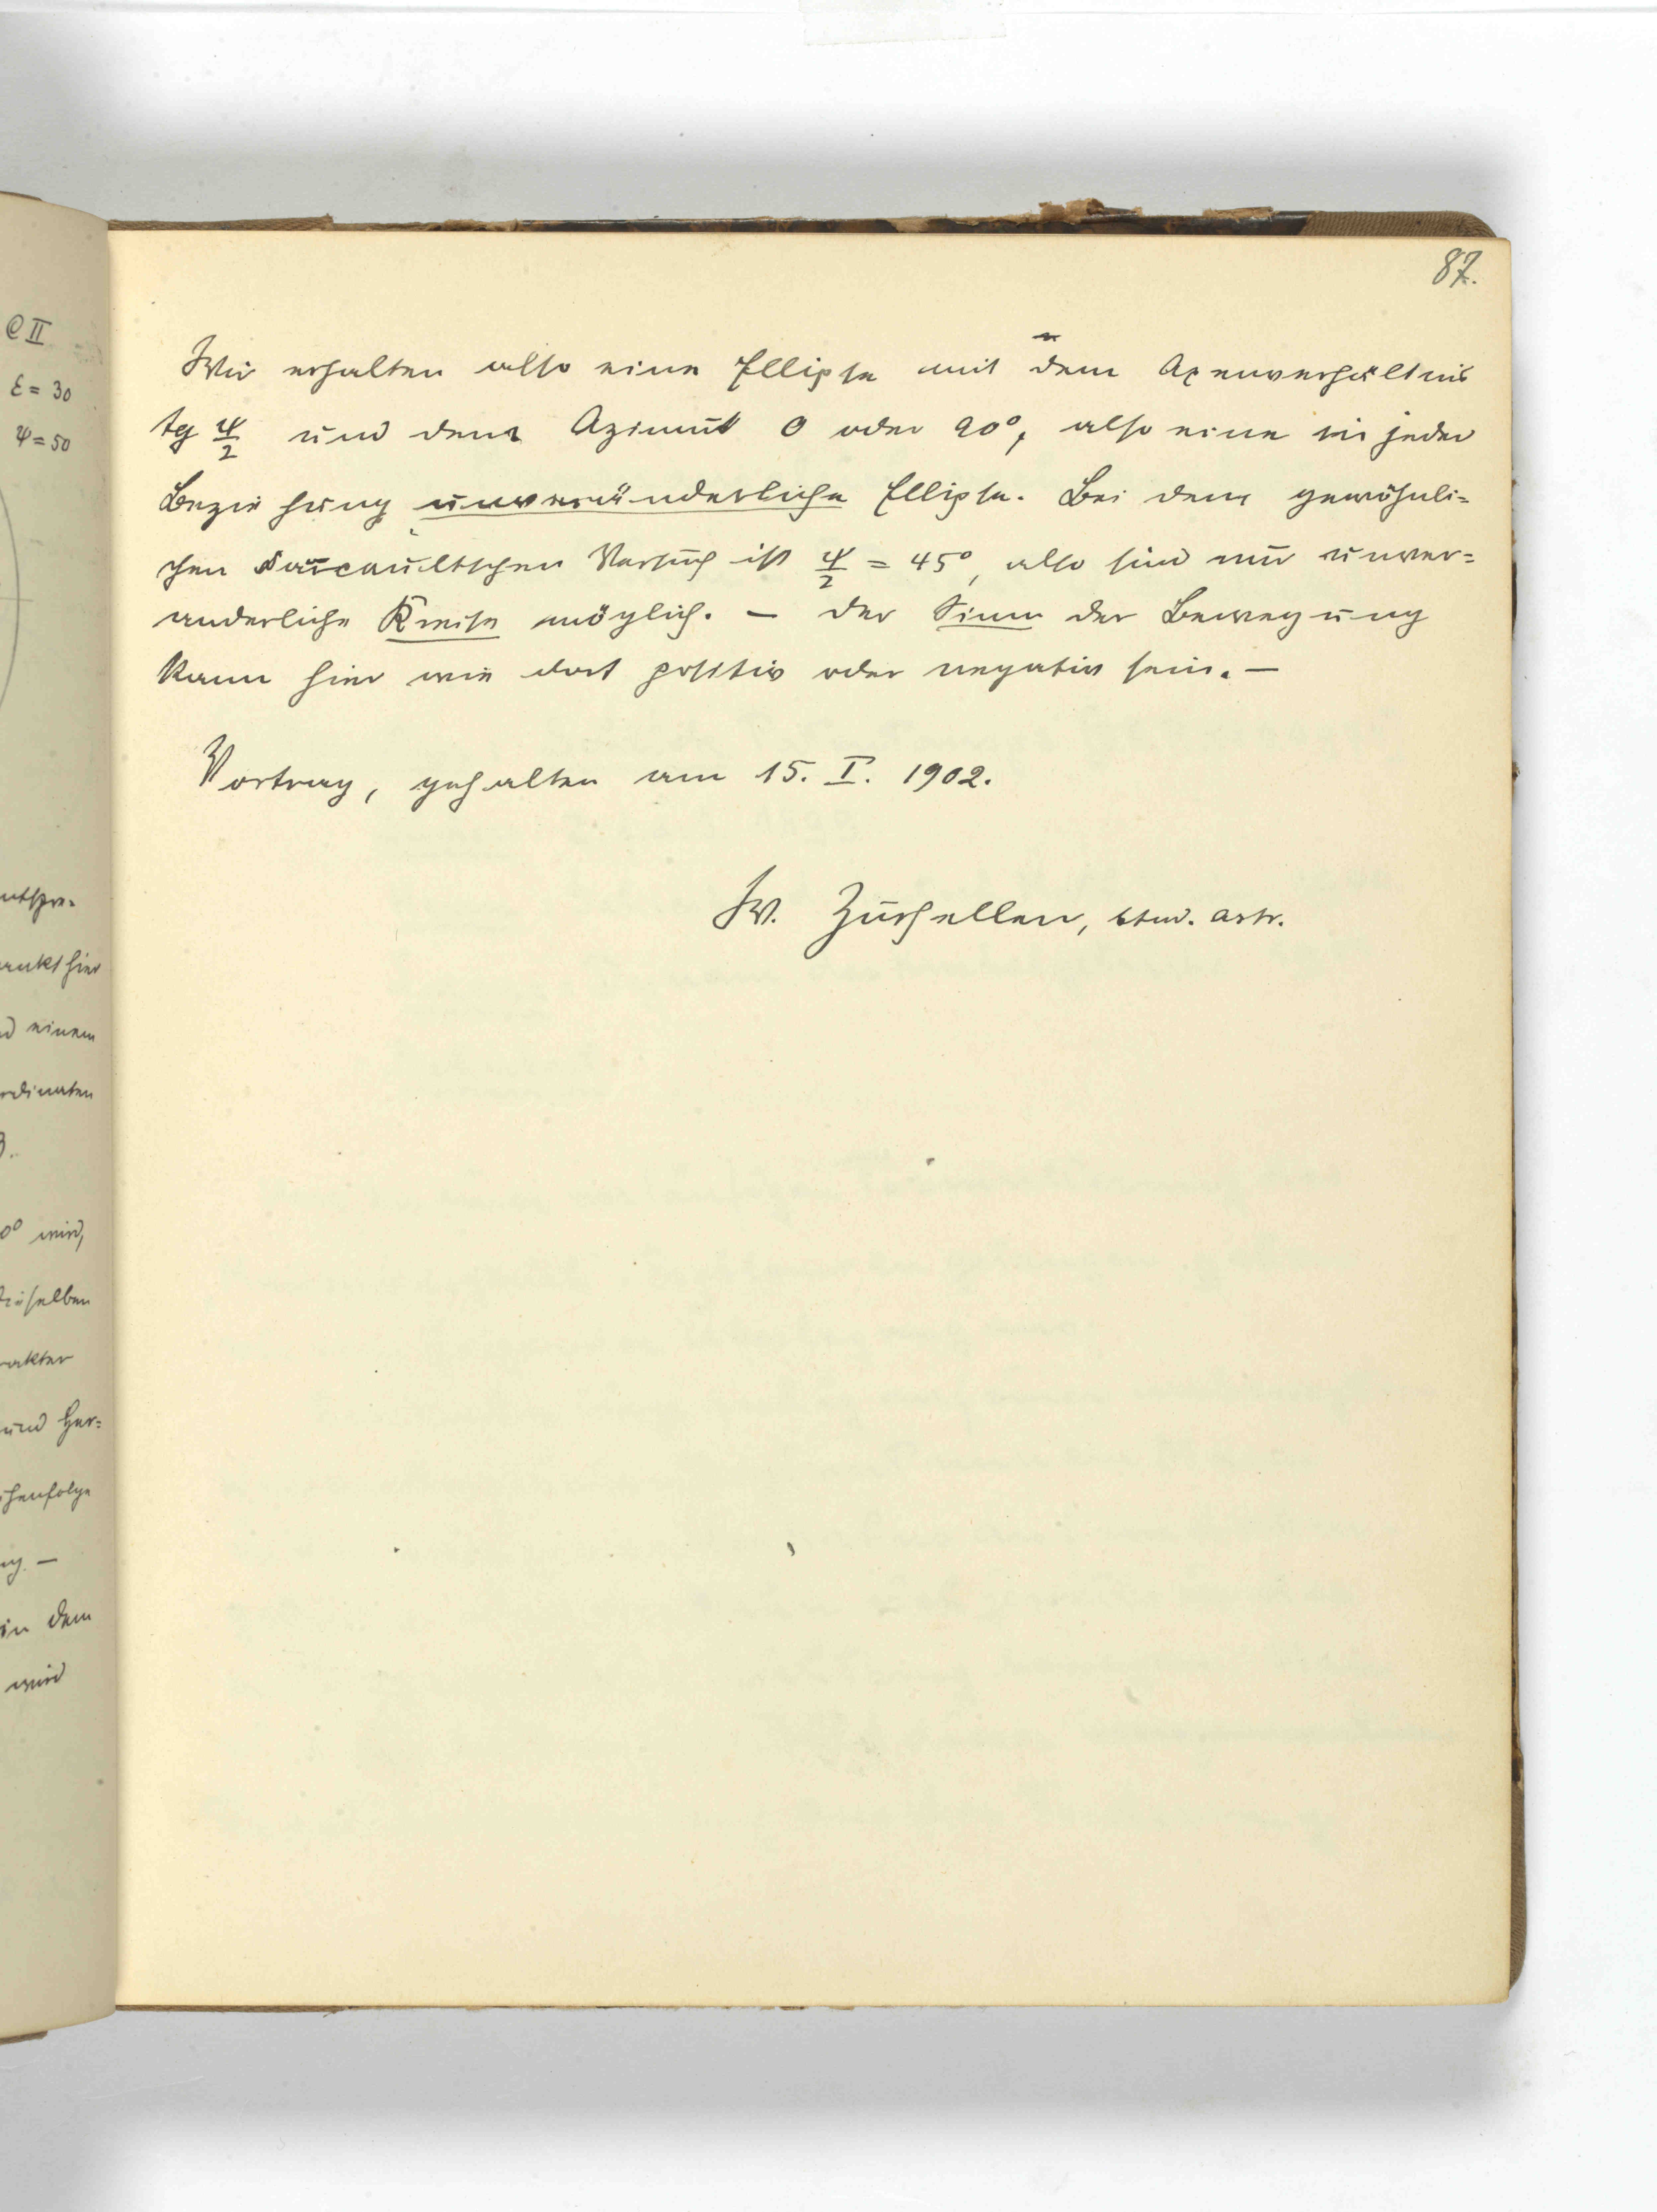 87.
C II
ε = 30
ψ = 50
Wir erhalten also eine Ellipse mit dem Axenverhältnis
tg ψ/2 und dem Azimut 0 oder 90°, also eine in jeder
Beziehung unveränderliche Ellipse. Bei dem gewöhnli=
chen Foucaultschen Versuch ist ψ/2 = 45°, also sind nur unver=
änderliche Kreise möglich. — Der Sinn der Bewegung
kann hier wie dort positiv oder negativ sein. —
Vortrag, gehalten am 15. I. 1902.
W. Zurhellen, stud. astr.
entspre=
punkt hier
d einem
ordinaten
0° wird,
dieselben
rakter
und Her=
ihenfolge
ng. —
in dem
wird